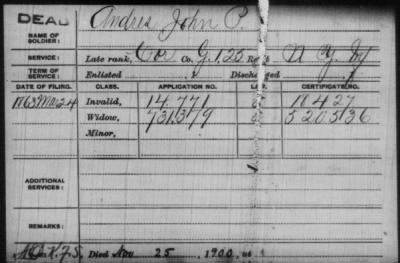 DEAD
NAME OF SOLDIER: Andres John P.
SERVICE: Late rank, Cor Co. G, 125 Reg't N Y Inf
TERM OF SERVICE: Enlisted Discharged
DATE OF FILING. CLASS. APPLICATION NO. LAW. CERTIFICATE NO.
1863 Mar 24 Invalid, 14,771 18427
Widow, 731,379 520536
Minor,
ADDITIONAL SERVICES:
REMARKS:
Died Nov 25, 1900, at